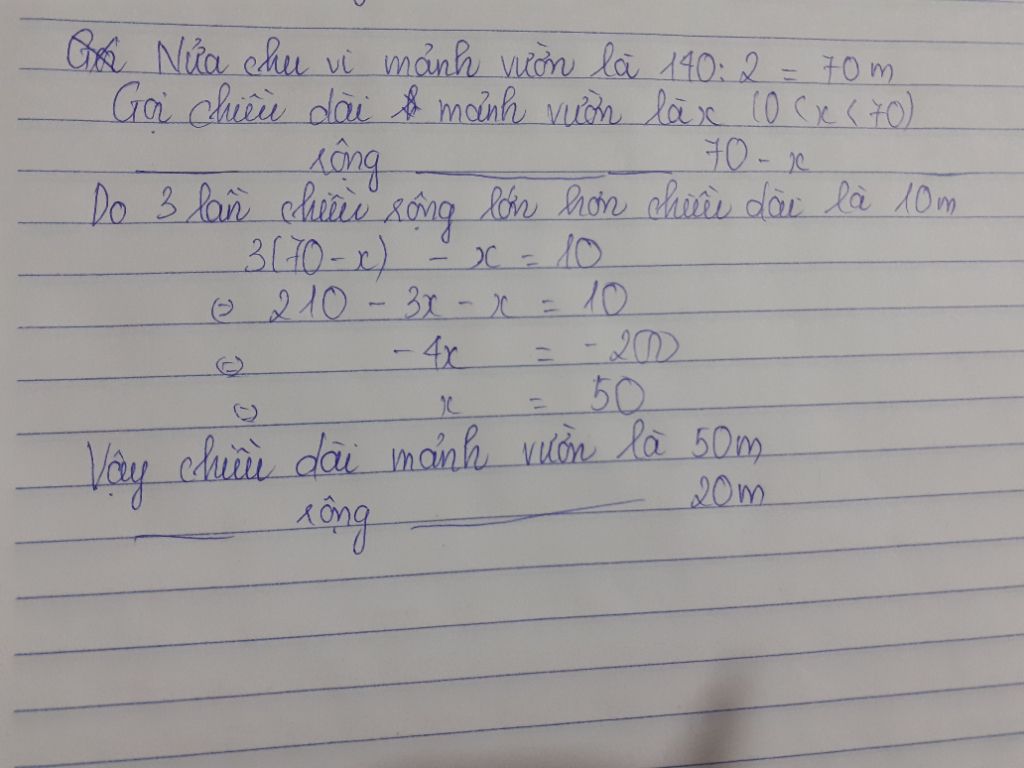 Nửa chu vi mảnh vườn là 140 : 2 = 70 m
Gọi chiều dài mảnh vườn là x (0 < x < 70)
rộng 70 - x
Do 3 lần chiều rộng lớn hơn chiều dài là 10m
3(70 - x) - x = 10
⇔ 210 - 3x - x = 10
⇔ - 4x = - 200
⇔ x = 50
Vậy chiều dài mảnh vườn là 50m
rộng 20m